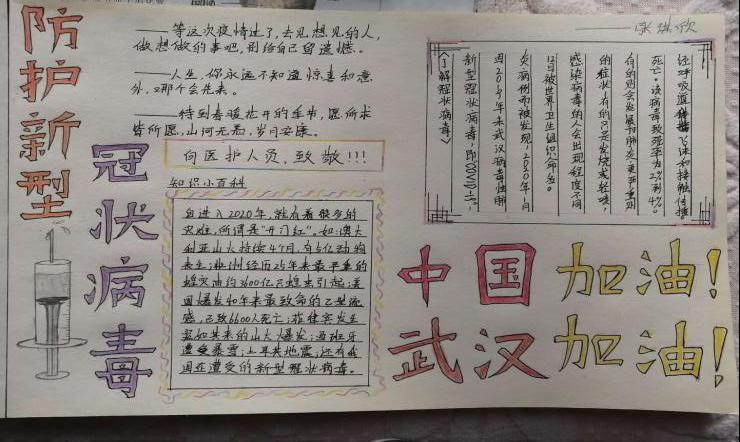 防护新型
冠状病毒
——等这次疫情过了,去见想见的人,
做想做的事吧,别给自己留遗憾。
——人生,你永远不知道惊喜和意
外,哪个会先来。
——待到春暖花开的季节,愿所求
皆所愿,山河无恙,岁月安康。
向医护人员,致敬!!!
知识小百科
自进入2020年,就有着很多的
灾难,所谓是“开门红”。如:澳大
利亚山火持续4个月,有5亿动物
丧生;非洲经历25年来最严重的
蝗灾由约3600亿只蝗虫引起;美
国爆发40年来最致命的乙型流
感,已致6600人死亡;菲律宾发生
突如其来的山火爆发;西班牙
遭受暴雪;土耳其地震;还有我
国在遭受的新型冠状病毒。
《了解冠状病毒》
新型冠状病毒,即COVID-19。
因2019年末武汉病毒性肺
炎病例而被发现,2020年1月
12日被世界卫生组织命名。
感染病毒的人会出现程度不同
的症状,有的只是发烧或轻咳,
有的则会发展为肺炎,更严重则
死亡。该病毒致死率为2%到4%。
经呼吸道飞沫和接触传播
中国加油!
武汉加油!